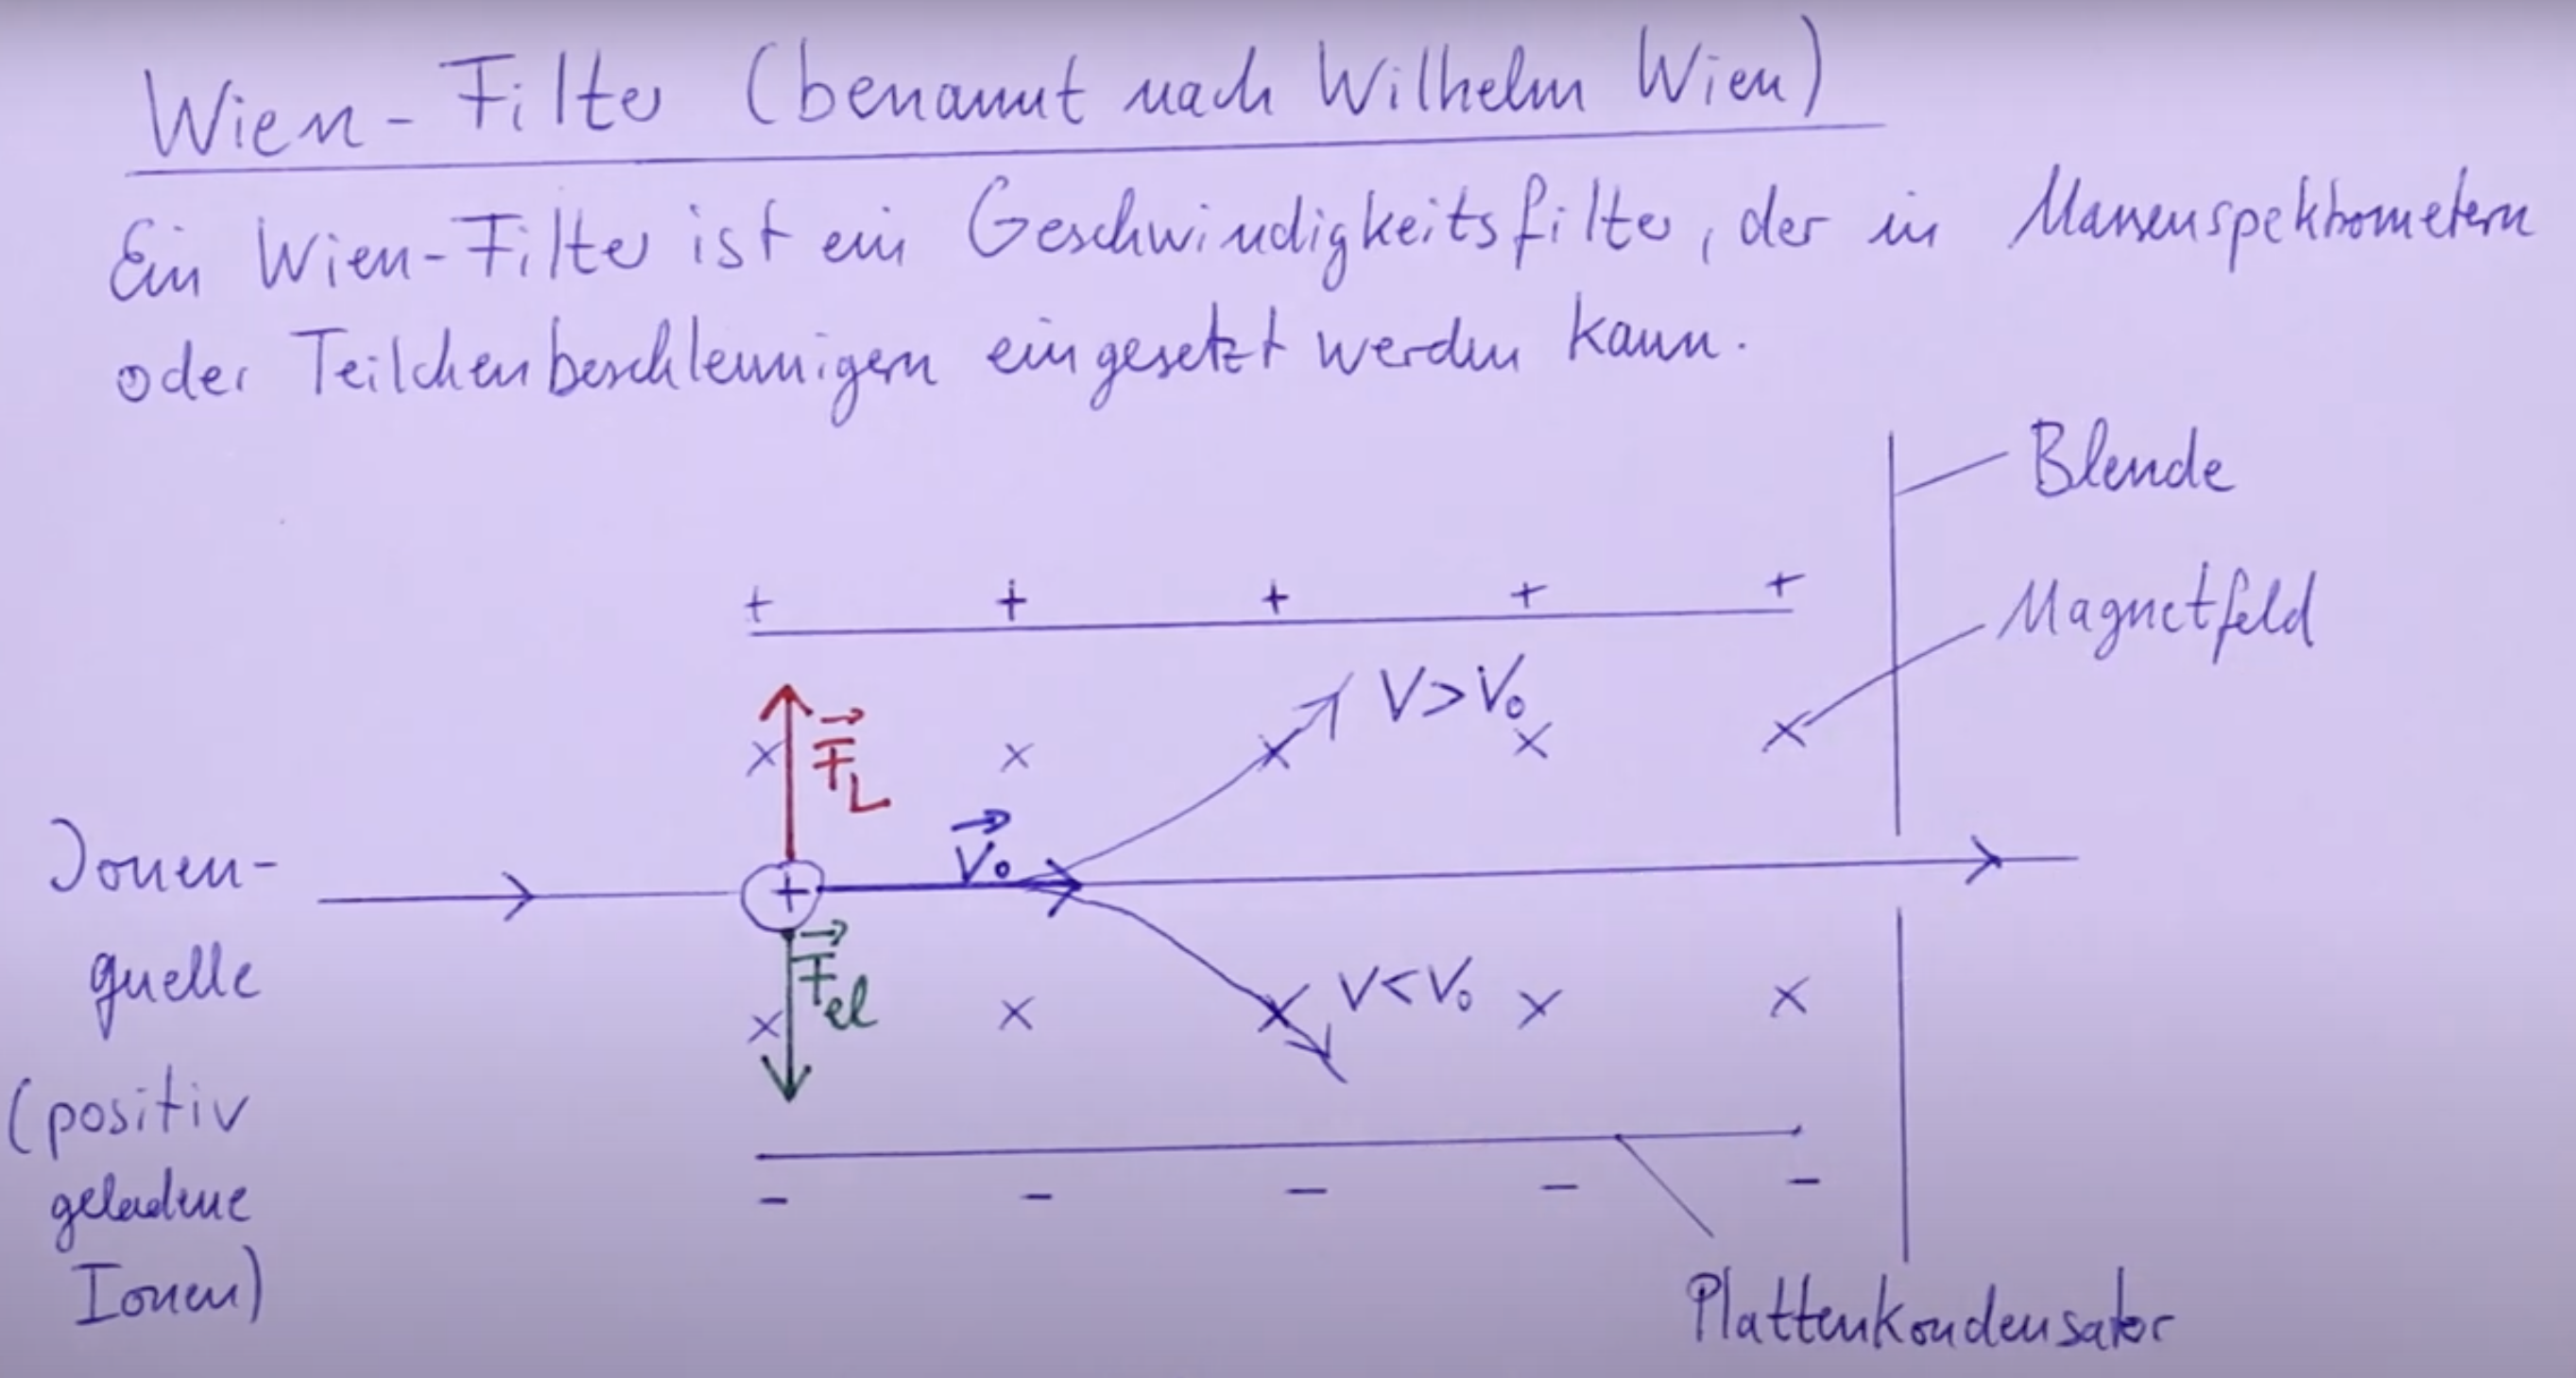 Wien-Filter (benannt nach Wilhelm Wien)
Ein Wien-Filter ist ein Geschwindigkeitsfilter, der in Massenspektrometern
oder Teilchenbeschleunigern eingesetzt werden kann.
Blende
+ + + + +
Magnetfeld
V > V₀
x x x x x
F⃗L
V⃗₀
Ionen-
+
quelle
F⃗el
V < V₀
x x x x x
(positiv
geladene
- - - - -
Ionen)
Plattenkondensator